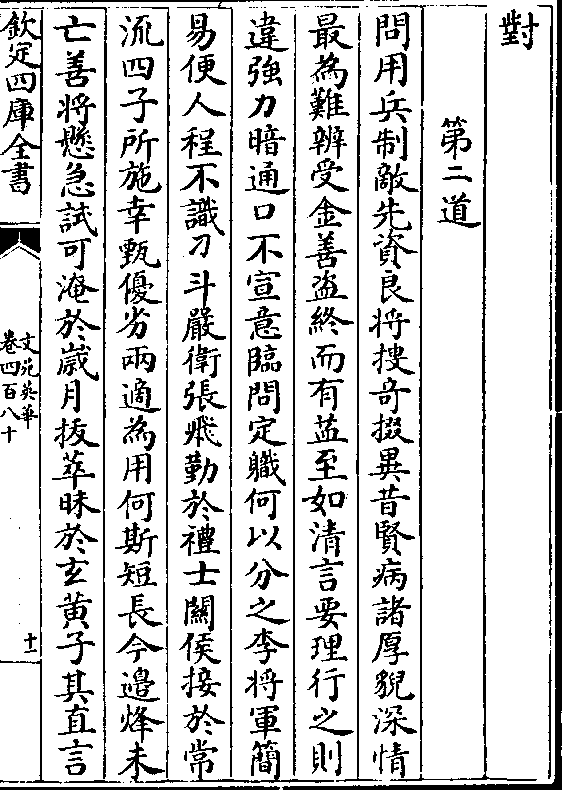 對
第二道
問用兵制敵先資良将搜奇掇異昔賢病諸厚貌深情
最為難辨受金善盗終而有益至如清言要理行之則
違強力暗通口不宣意臨問定職何以分之李将軍簡
易便人程不識刁斗嚴衛張飛勤於禮士關侯接於常
流四子所施幸甄優劣兩適為用何斯短長今邉烽未
亡善将懸急試可淹於歳月拔萃昧於玄黄子其直言
欽定四庫全書
文苑英華
卷四百八十
十一